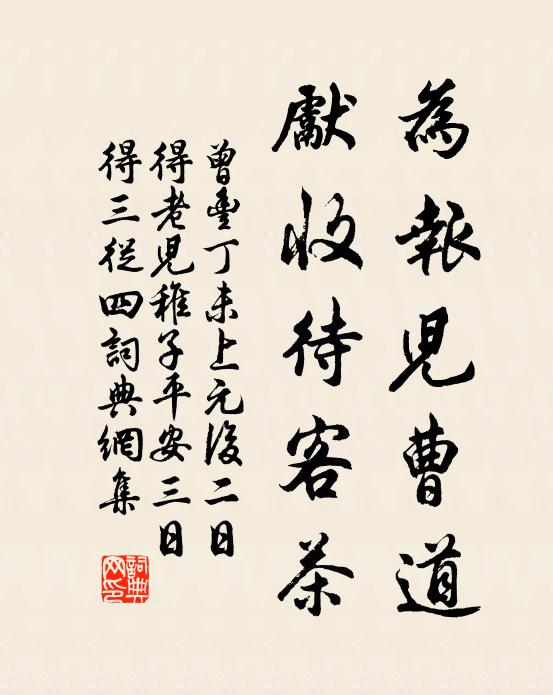 為報兒曹道
獻收待客茶
曾豐丁未上元後二日
得老兒稚子平安三日
得三從四詞典網集
詞典網印